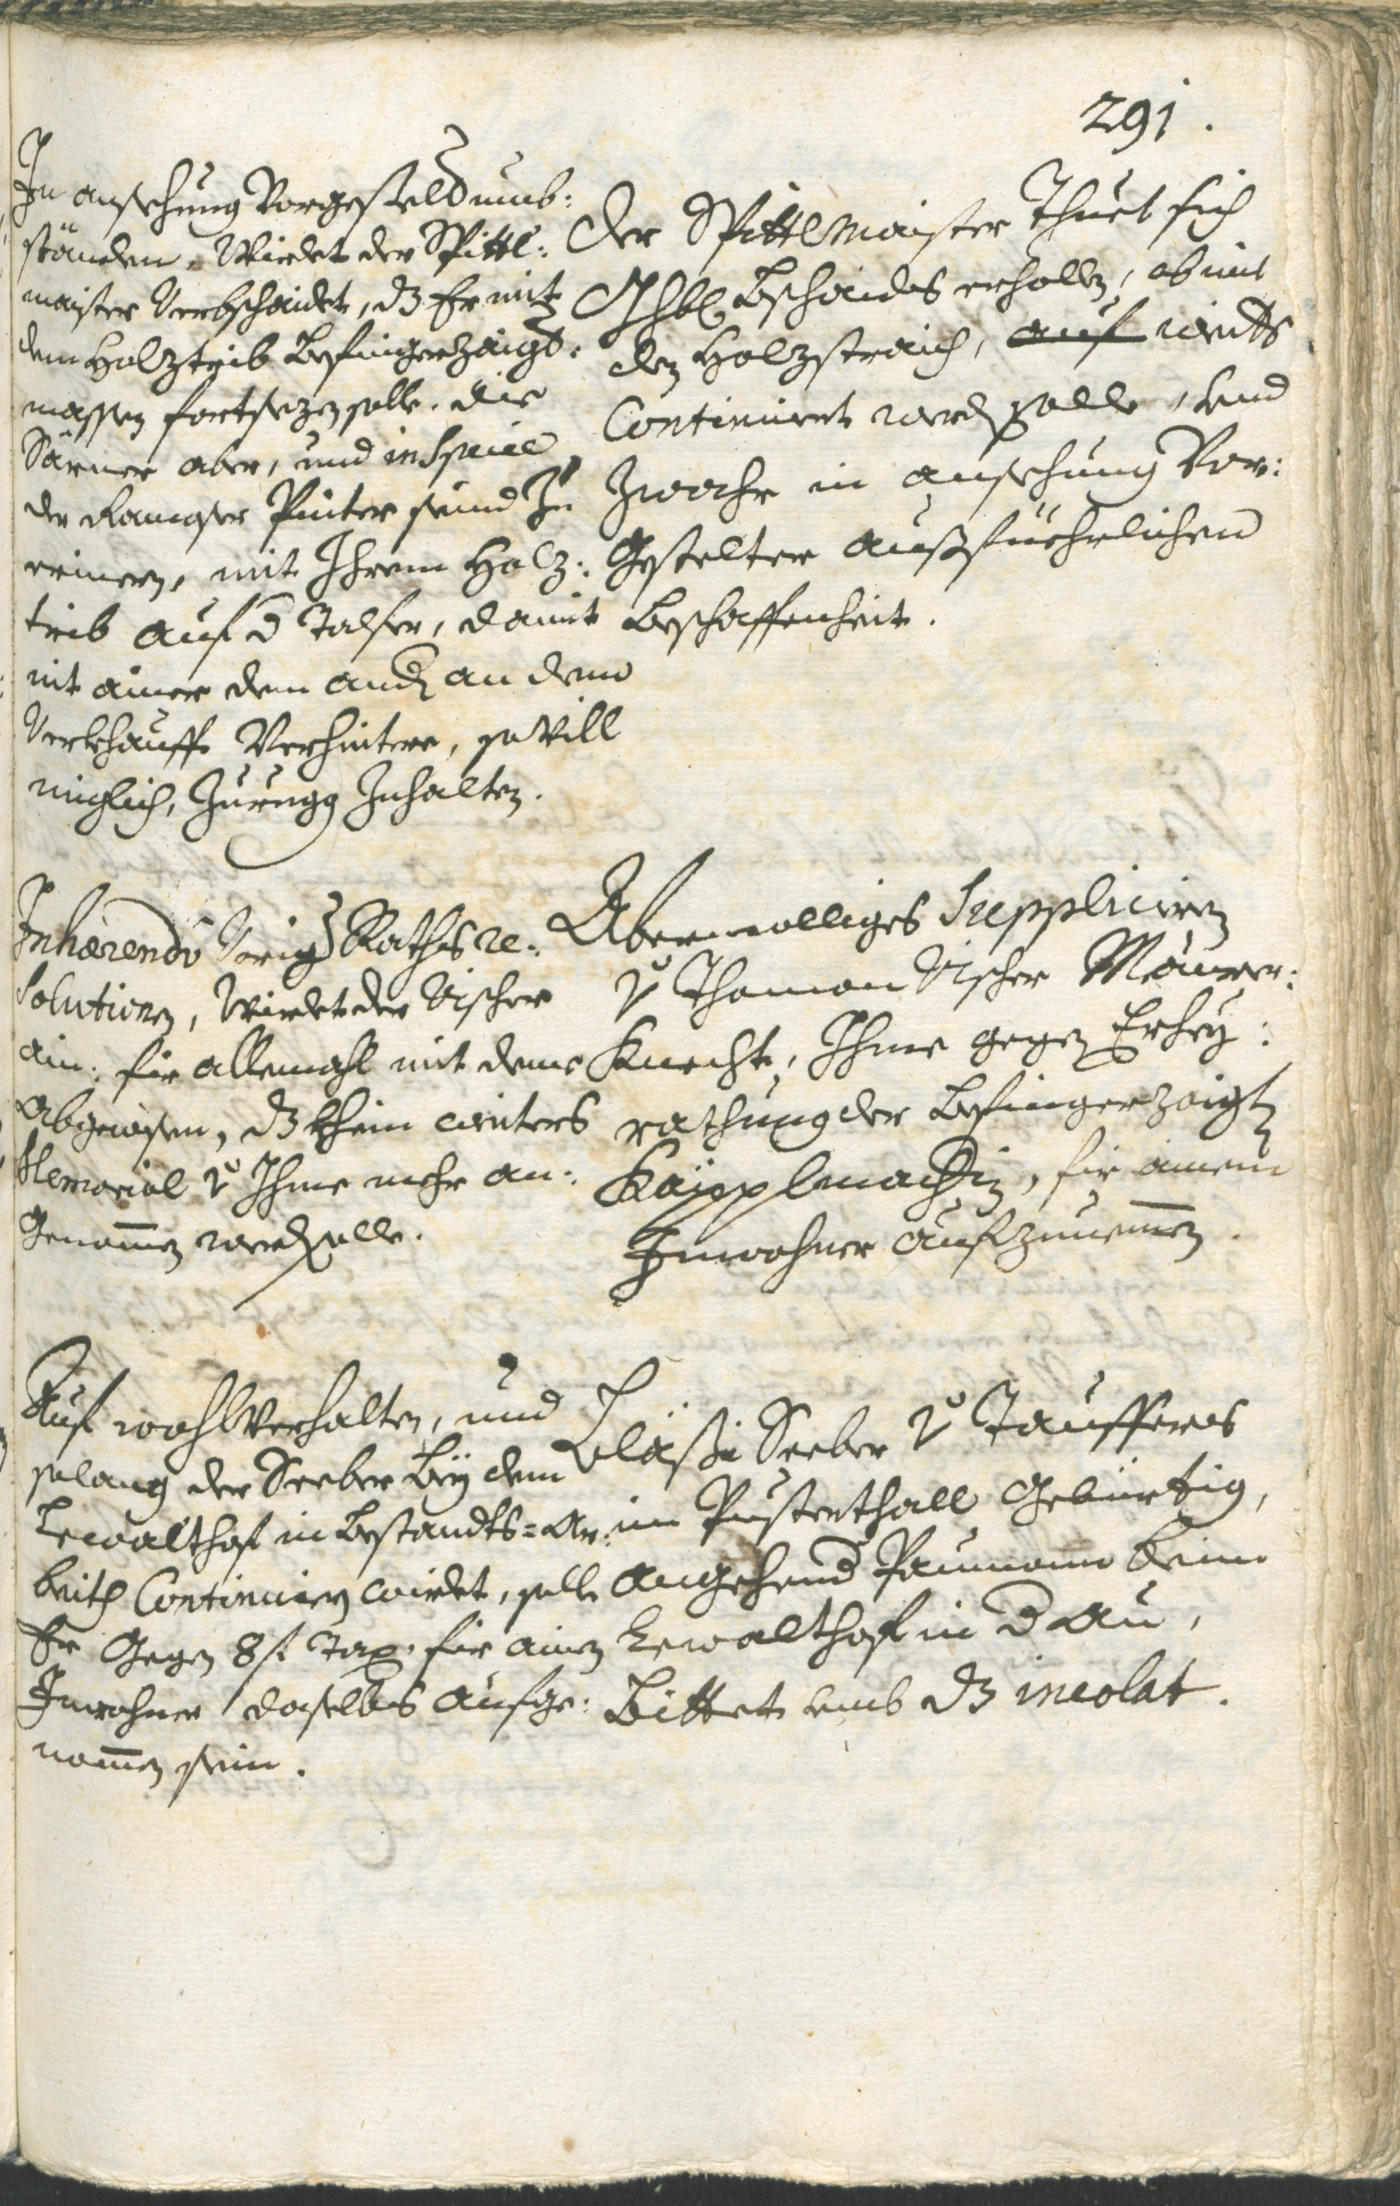 291.
In ansehung Vorgesteld umb:
ständen, Wirdet der Spittl:
maister Verbschaidet, dz Er mit
dem Holztrib Befingerzaigt:
massen fortsezen solle. die
Särner aber, und in Specie
der Ramoser Pinter seind Zu
erinern, mit Ihrem Holz:
trib auf d Talfer, damit
nit ainer dem andern an dem
Verkhauff Verhintere, so Vill
miglich, Zurugg Zuhalten.
Der Spittlmaister Thuet sich
Bschaidts erhollen, ob mit
den Holzstraich, auf weitts
Continuiert werden solle, und
Zwahr in ansehung Vor:
Gestelter ausfüehrlichen
Beschaffenheit.
Inhærendo Vorig Raths re:
solutionen, Wirdet der Vischer
ain: fir allemahl mit deme
Abgewisen, dz khein weiters
Memorial v Ihme mehr an:
Genomen werden solle.
Abermolliges Suppliciren
v Thoman Vischer Maurer:
Knecht, Ihme gegen Erhey:
rathung der Befingerzaigten
Käpplmacherin, fir ainem
Inwohner aufzunemen.
Auf wohlverhalten, und
solang der Seeber Bey dem
Lewalthof in Bestandts=Ar:
beith Continuiren wirdet, solle
Er Gegen 8 f Tax: fir ainen
Inwohner daselbs aufge:
nomen sein.
Bläsi Seeber v Taufferes
im Pusterthall Gebürtig,
Angehend Paumann beim
Lewalthof in d Au,
Bittet umb dz incolat.